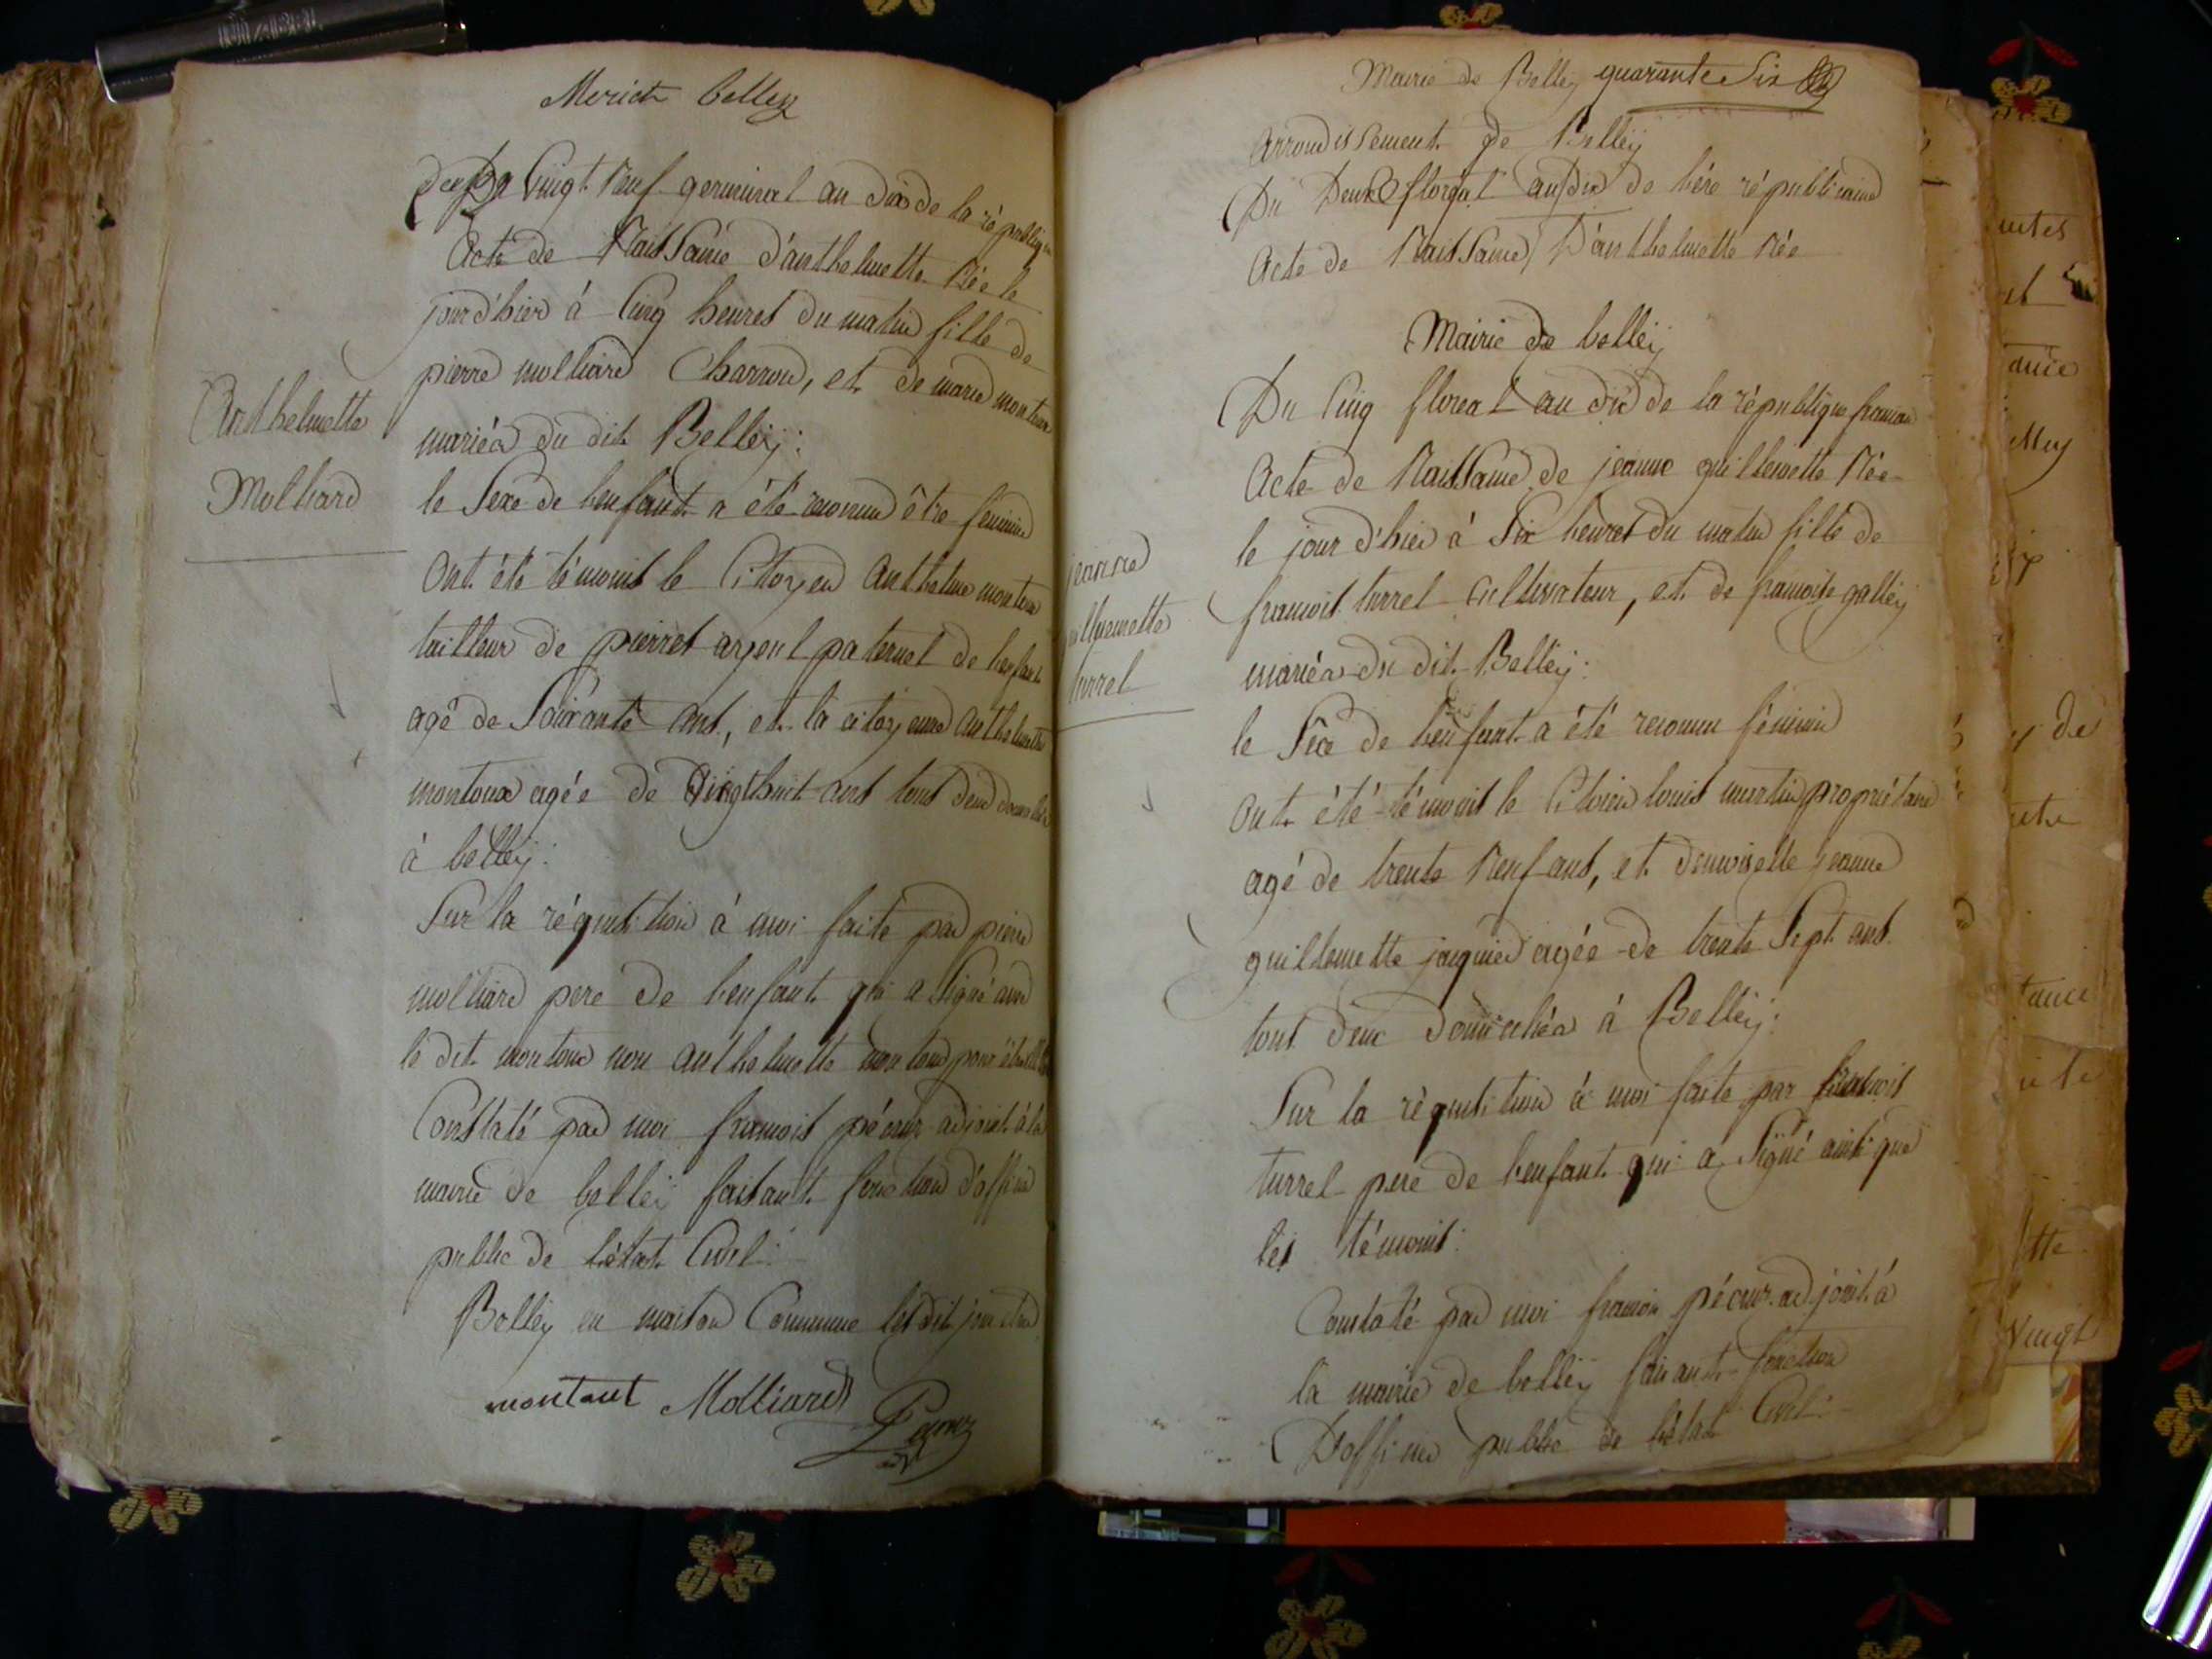 belley
Du vingt neuf germinal an dix de la républiq
Acte de Naissance d'anthelmette Née le
jour d'hier à Cinq heures du matin fille de
pierre molliard Charron, et de marie montoux
mariés du dit Belleÿ:
Anthelmette
Molliard
le Sexe de lenfant a été reconnu être féminin
Ont été témoins le Citoyen Anthelme montoux
tailleur de pierres ayeul paternel de lenfant
agé de Soixante ans, et la citoyenne Anthelmette
montoux agée de vingthuit ans tous deux
à belleÿ:
Sur la réquisition à moi faite par pierre
molliard pere de lenfant qui a Signé avec
le dit montoux non anthelmette montoux pour
Constaté par moi françois pécour adjoint à la
mairie de belleÿ faisant fonction d'officier
public de létat Civil:
Belley en maison Commune les dit jour et an
montout Molliard
Mairie de Belley quarante Six
Arrondissement de Belleÿ
Du Deux floréal an dix de lère républicaine
Acte de Naissance D'anthelmette Née
Mairie de belleÿ
Du Cinq floreal an dix de la république française
Acte de Naissance de jeanne guillemette Née
le jour d'hier à Six heures du matin fille de
françois turrel Cultivateur, et de françoise galleÿ
mariés du dit Belleÿ:
jeanne
turrel
le Sexe de lenfant a été reconnu féminin
Ont été témoins le Citoien louis martin propriétaire
agé de trente Neuf ans, et demoiselle jeanne
guillemette jaquier agée de trente Sept ans
tous deux domiciliés à Belleÿ:
Sur la réquisition à moi faite par françois
turrel pere de lenfant qui a Signé ainsi que
les témoins:
Constaté par moi françois pécour adjoint à
la mairie de belleÿ faisant fonction
D'officier public de létat Civil: